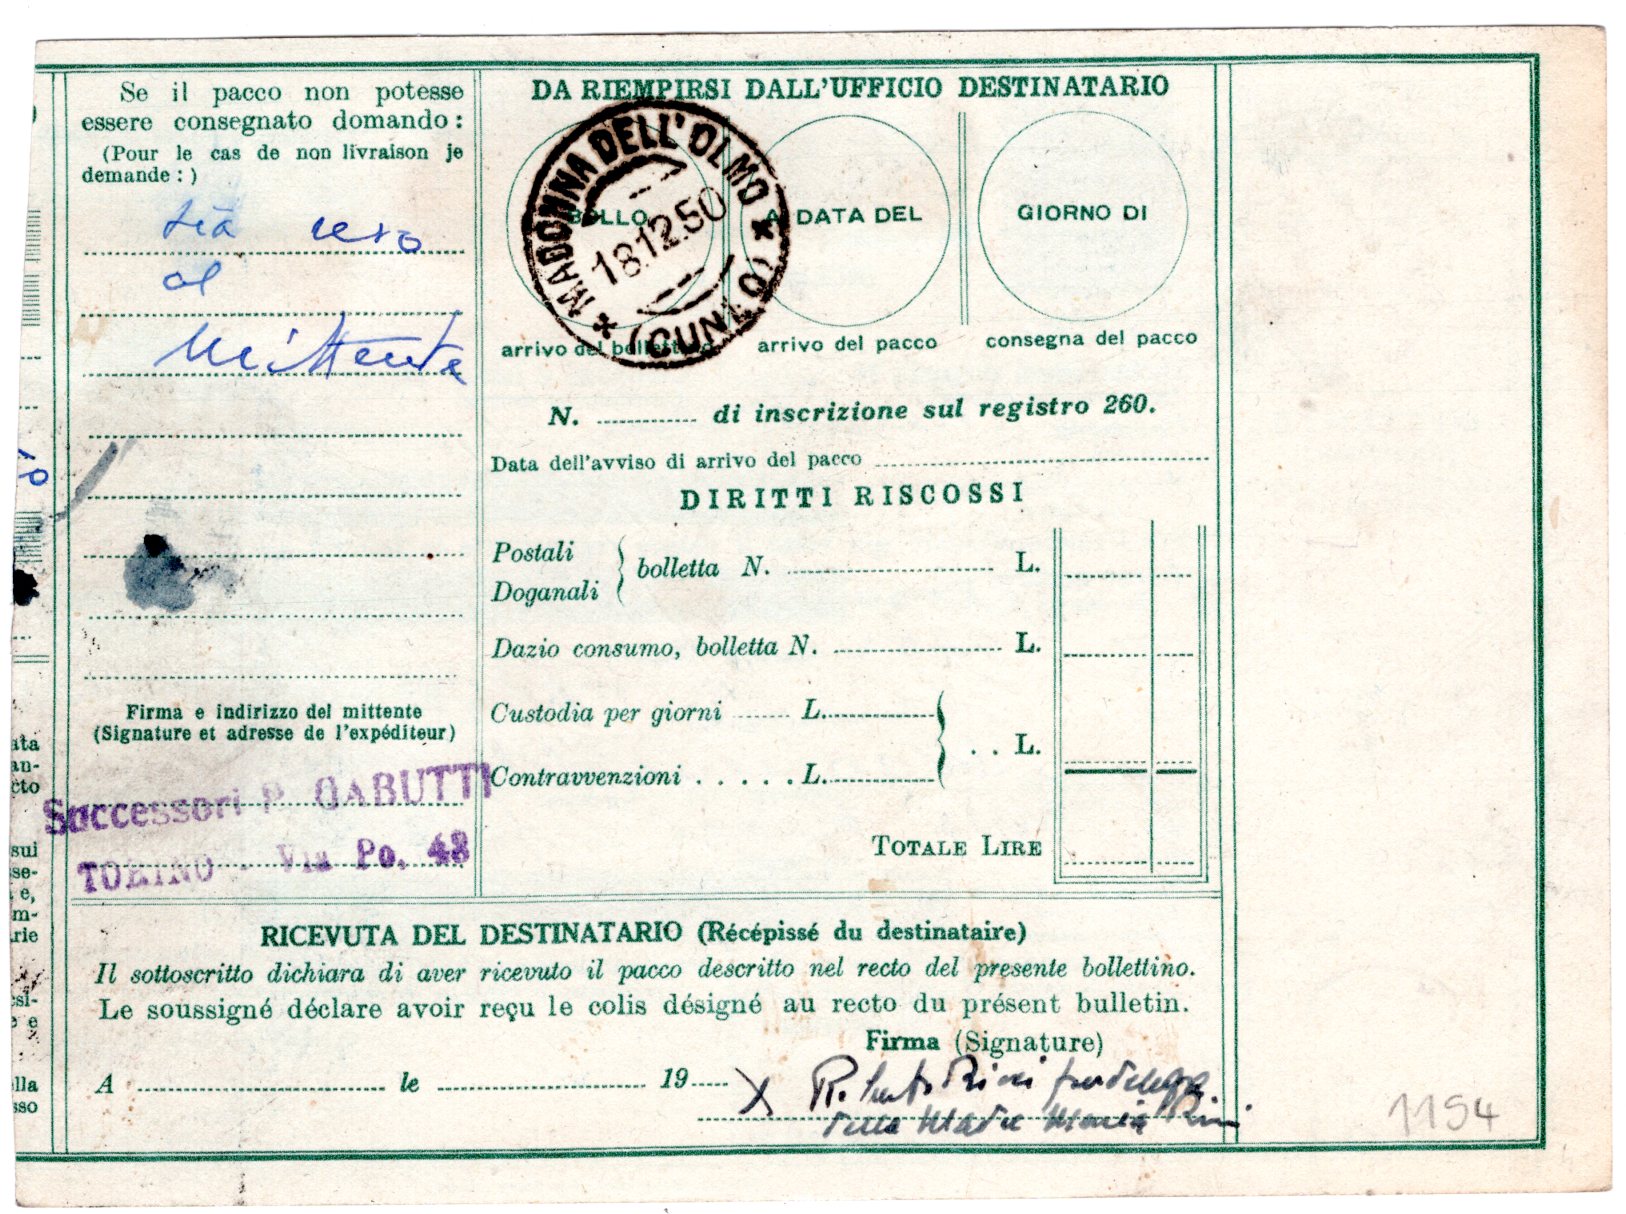 Se il pacco non potesse
essere consegnato domando :
(Pour le cas de non livraison je
demande : )
sia reso
al
Mittente
Firma e indirizzo del mittente
(Signature et adresse de l'expéditeur)
Successori P. GABUTTI
TORINO - Via Po, 48
DA RIEMPIRSI DALL'UFFICIO DESTINATARIO
MADONNA DELL'OLMO
(CUNEO)
18.12.50
BOLLO
A DATA DEL
GIORNO DI
arrivo del bollettino
arrivo del pacco
consegna del pacco
N. ............ di inscrizione sul registro 260.
Data dell'avviso di arrivo del pacco
DIRITTI RISCOSSI
Postali
Doganali
bolletta N. ............ L.
Dazio consumo, bolletta N. ............ L.
Custodia per giorni ........ L. ............
. . L.
Contravvenzioni . . . . . L. ............
TOTALE LIRE
RICEVUTA DEL DESTINATARIO (Récépissé du destinataire)
Il sottoscritto dichiara di aver ricevuto il pacco descritto nel recto del presente bollettino.
Le soussigné déclare avoir reçu le colis désigné au recto du présent bulletin.
Firma (Signature)
A ............ le ............ 19.....
X Roberto Rini per delega
della Madre Maria Rini
1154
ata
an-
cto
sui
se-
e,
m-
rie
esi-
e e
lla
sso